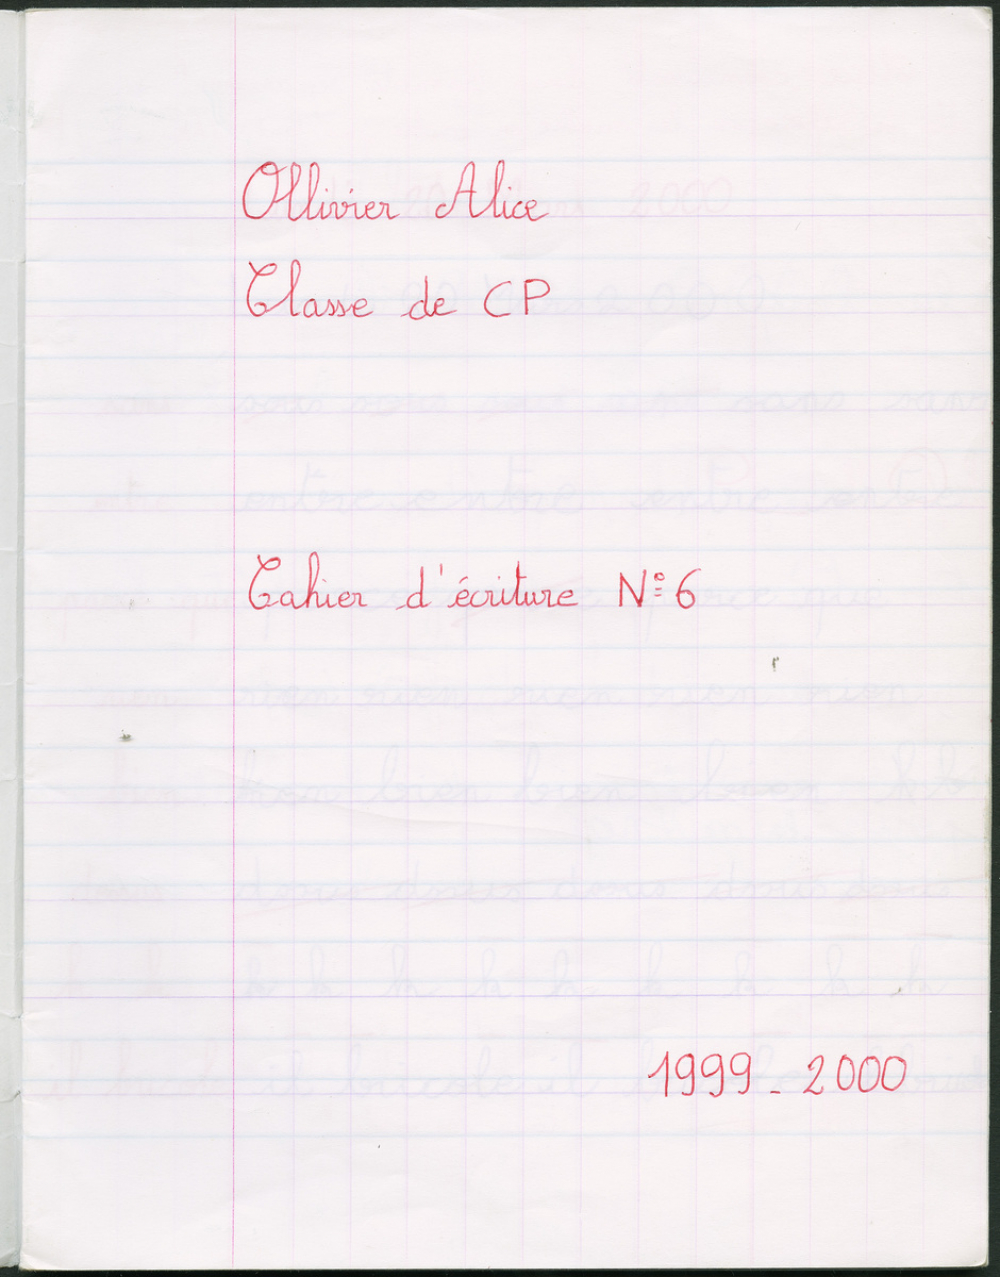 Ollivier Alice
Classe de CP
Cahier d'écriture N° 6
1999 - 2000